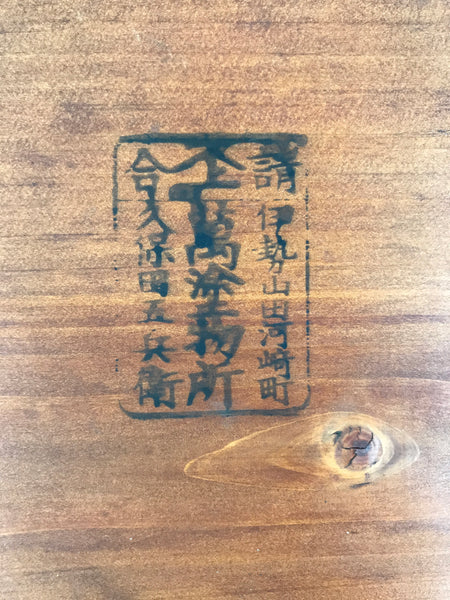 請合
上
伊勢山田河崎町
萬塗物所
久保田五兵衛